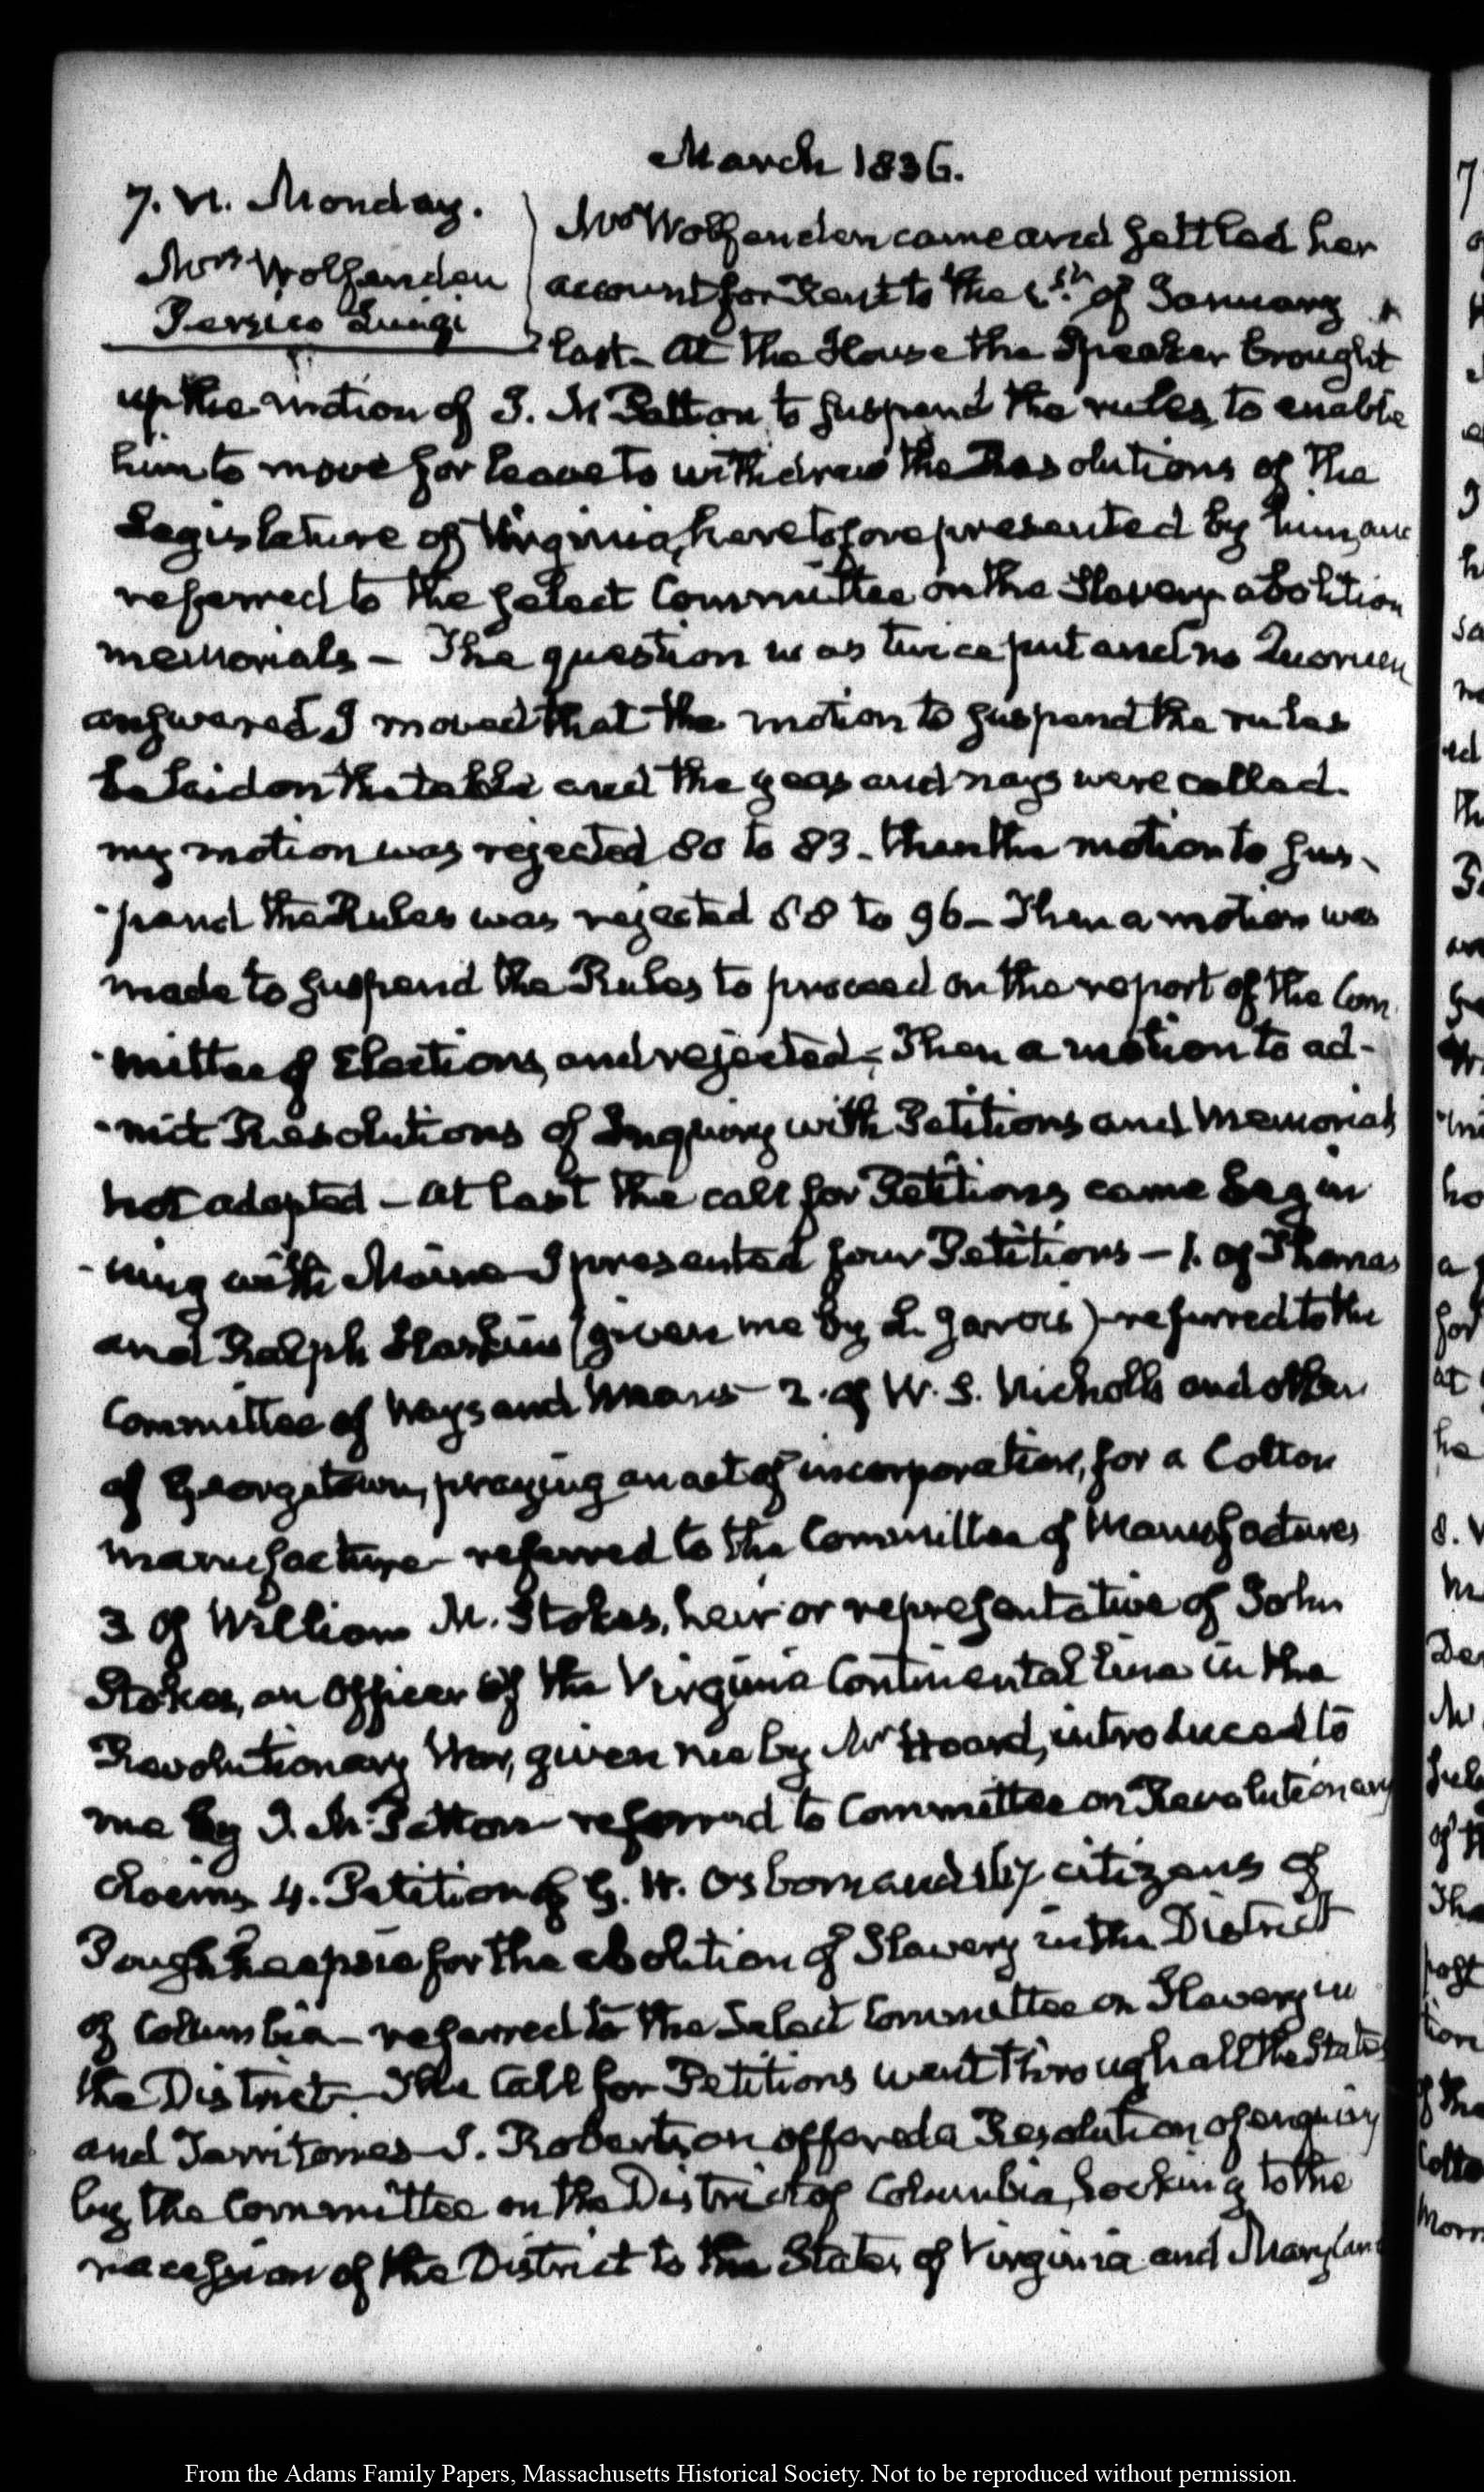 March 1836.
7. VI. Monday.
Mrs Wolfenden
Persico Luigi
Mrs Wolfenden came and settled her
account for Rent to the of January
last— At the House the Speaker brought
up the motion of J. M Patton to suspend the rules, to enable
him to move for leave to withdraw the Resolutions of the
Legislature of Virginia, heretofore presented by him, and
referred to the select Committee on the Slavery abolition
memorials— The question was twice put and no Quorum
answered I moved that the motion to suspend the rules
be laid on the table and the yeas and nays were called.
my motion was rejected 80 to 83— then the motion to sus-
-pend the Rules was rejected 88 to 96— Then a motion was
made to suspend the Rules to proceed on the report of the Com
-mittee of Elections, and rejected— Then a motion to ad-
-mit Resolutions of Inquiry with Petitions and Memorials
not adopted— At last the call for Petitions came begin
-ning with Maine— I presented four Petitions— 1. of Thomas
and Ralph Haskins (given me by L. Jarvis)— referred to the
Committee of Ways and Means— 2. of W. S. Nicholls and others
of Georgetown, praying an act of incorporation, for a Cotton
manufacture— referred to the Committee of Manufactures
3 of William M. Stokes, heir or representative of John
Stokes, an Officer of the Virginia Continental Line in the
Revolutionary War, given me by Mr Hoard, introduced to
me by J. M. Patton— referred to Committee on Revolutionary
claims 4. Petition of G. W. Osborn and 167 citizens of
Poughkeepsie for the abolition of Slavery in the District
of Columbia— referred to the Select Committee on Slavery in
the District— The Call for Petitions went through all the States
and Territories— J. Robertson offered a Resolution of enquiry
by the Committee on the District of Columbia, looking to the
recession of the District to the States of Virginia and Maryland
From the Adams Family Papers, Massachusetts Historical Society. Not to be reproduced without permission.